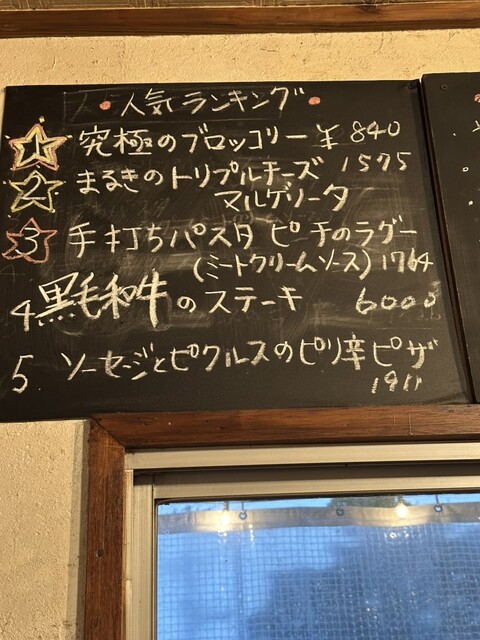 人気ランキング
1 究極のブロッコリー ¥840
2 まるきのトリプルチーズ 1575
マルゲリータ
3 手打ちパスタ ピチのラグー
(ミートクリームソース) 1764
4 黒毛和牛のステーキ 6000
5 ソーセージとピクルスのピリ辛ピザ
1911